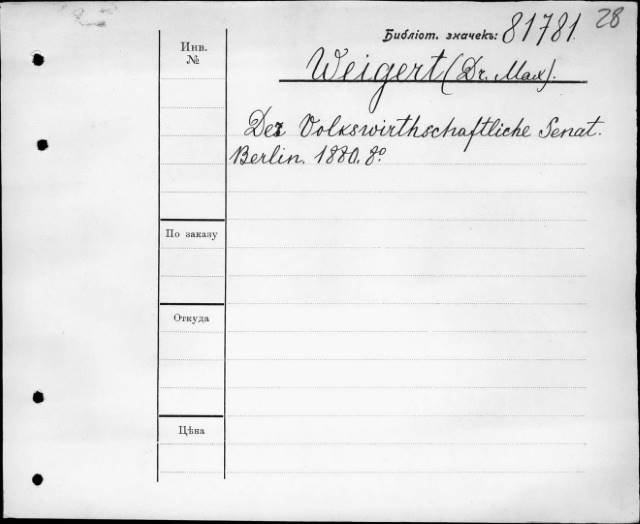 28
Библіот. значекъ: 81781
Инв.
№
Weigert (Dr. Max).
Der Volkswirthschaftliche Senat.
Berlin. 1880. 8º
По заказу
Откуда
Цѣна